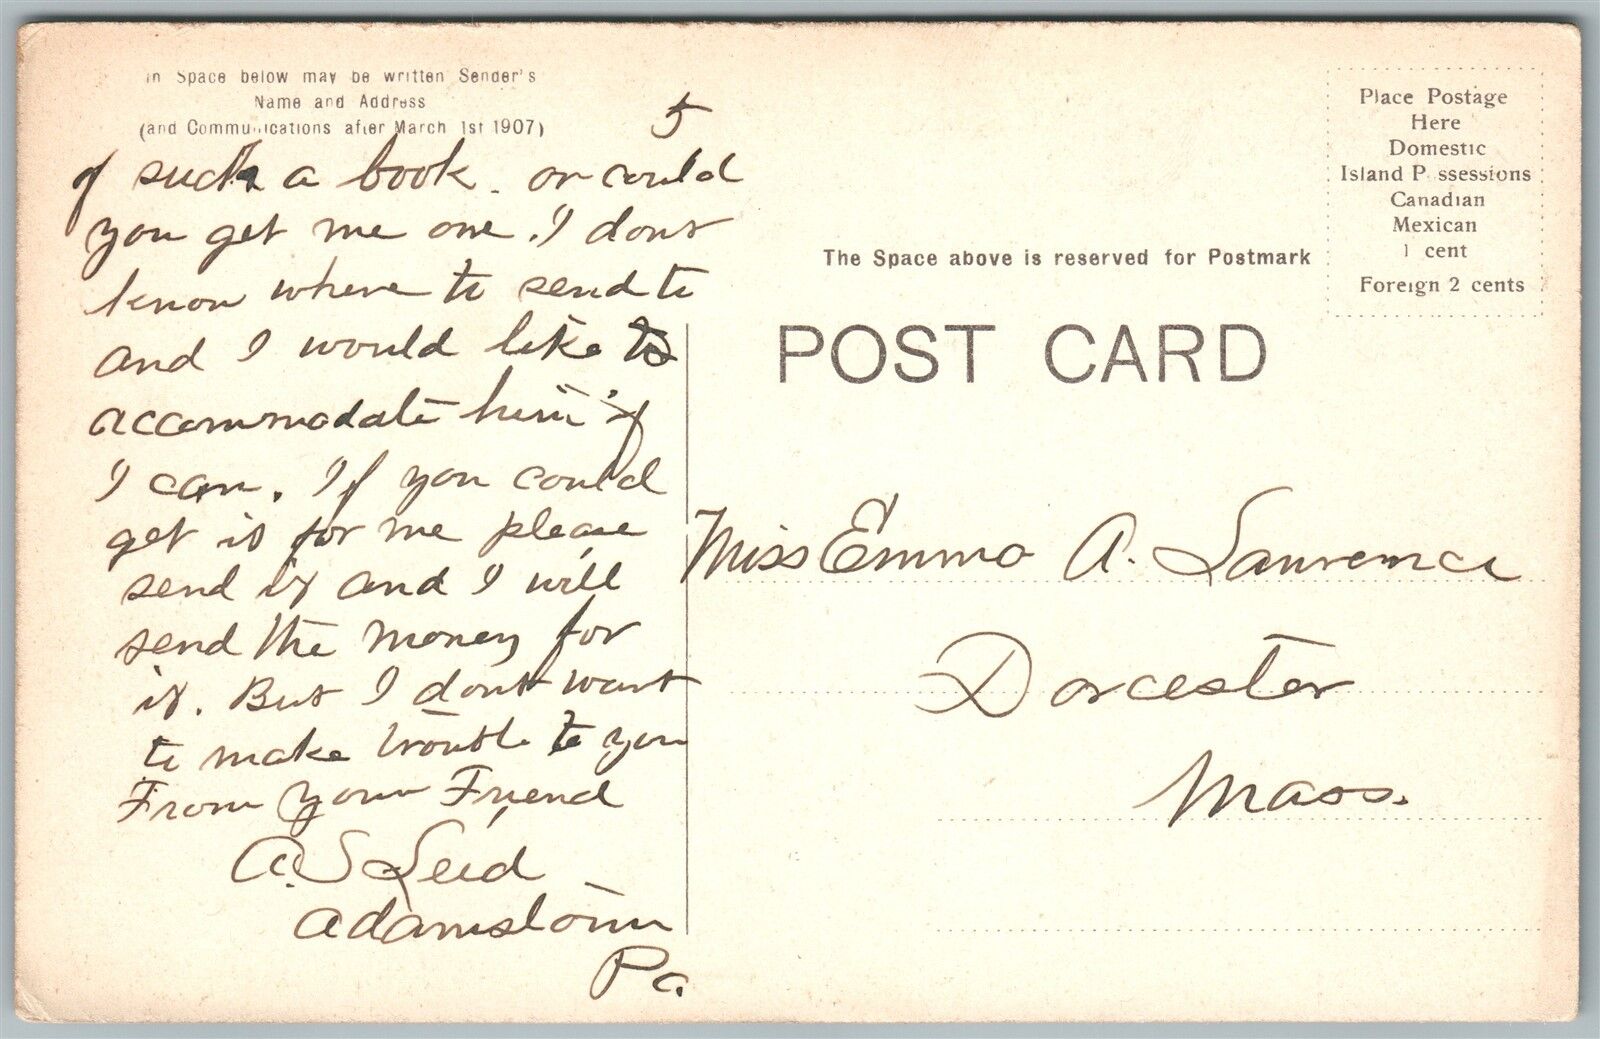 In Space below may be written Sender's
Name and Address
(and Communications after March 1st 1907)
5
of such a book. or could
you get me one. I dont
know where to send to
and I would like to
accommodate him if
I can. If you could
get is for me please
send it and I will
send the money for
it. But I dont want
to make trouble to you
From your Friend
A. S. Leid
Adamstown
Pa.
Place Postage
Here
Domestic
Island Possessions
Canadian
Mexican
1 cent
Foreign 2 cents
The Space above is reserved for Postmark
POST CARD
Miss Emma A. Lawrence
Dorcester
Mass.